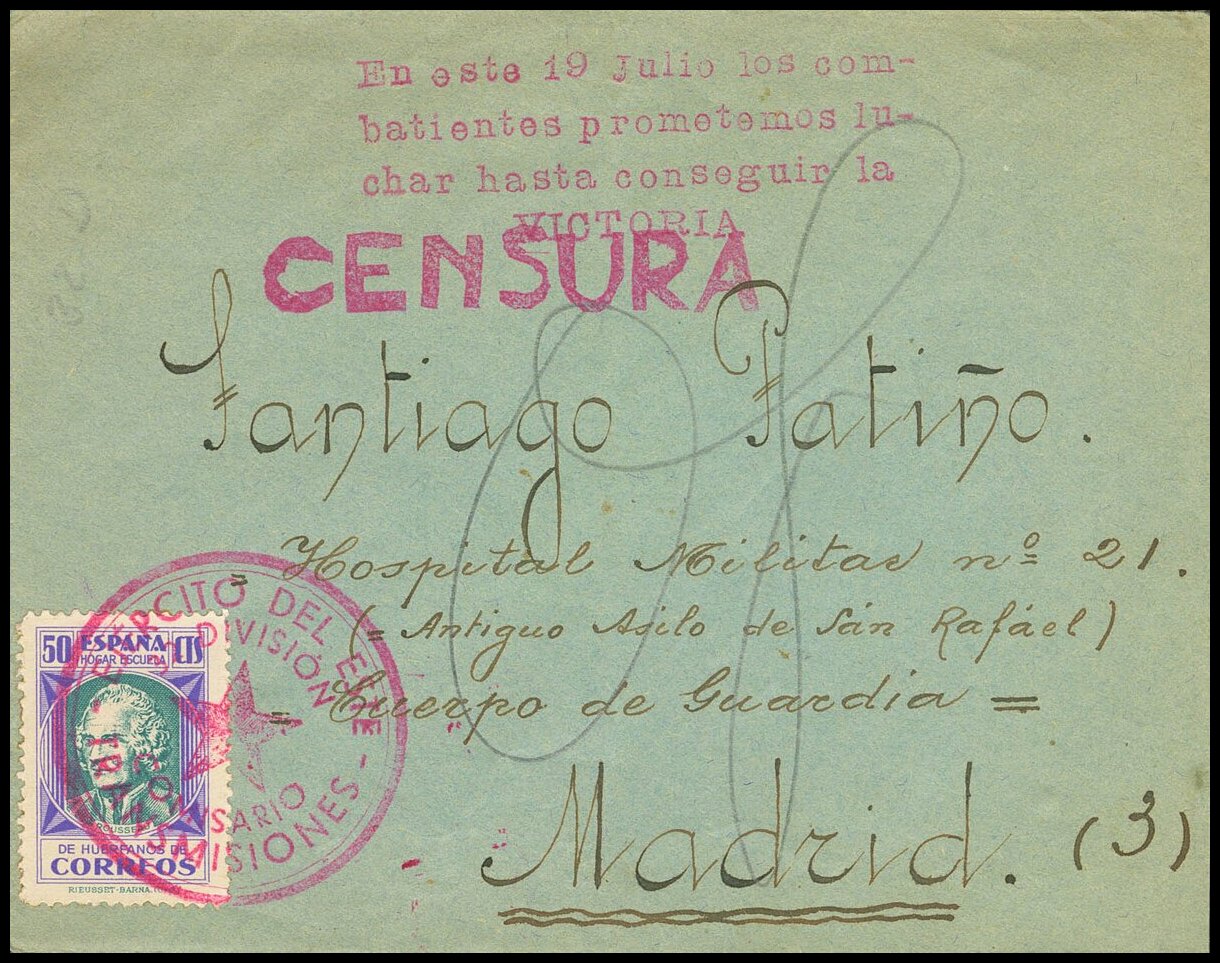 En este 19 Julio los com-
batientes prometemos lu-
char hasta conseguir la
VICTORIA
CENSURA
Santiago Patiño.
= Hospital Militar nº 21.
(= Antiguo Asilo de Sán Rafáel)
= Cuerpo de Guardia =
Madrid. (3)
EJÉRCITO DEL ESTE
DIVISIÓN
COMISARIO
TRANSMISIONES -
50 ESPAÑA CTS
HOGAR ESCUELA
ROUSSEAU
DE HUERFANOS DE
CORREOS
RIEUSSET-BARNA.